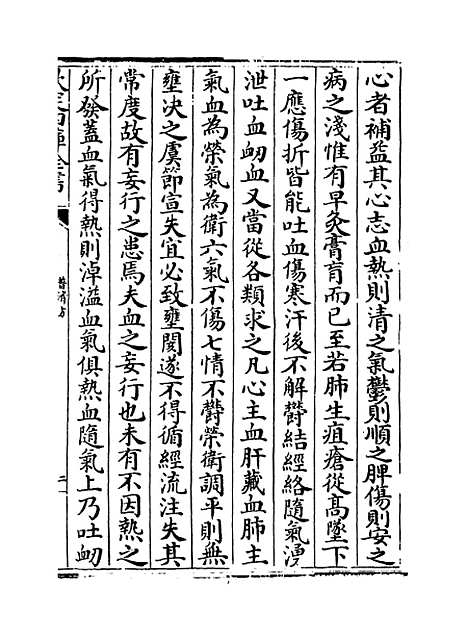 心者補益其心志血熱則清之氣鬱則順之脾傷則安之
病之淺惟有早灸膏肓而已至若肺生疽瘡從高墜下
一應傷折皆能吐血傷寒汗後不解欝結經絡隨氣湧
泄吐血衂血又當從各類求之凡心主血肝藏血肺主
氣血為榮氣為衛六氣不傷七情不欝榮衛調平則無
壅決之虞節宣失宜必致壅閼遂不得循經流注失其
常度故有妄行之患焉夫血之妄行也未有不因熱之
所發蓋血氣得熱則淖溢血氣俱熱血隨氣上乃吐衂
欽定四庫全書
普濟方